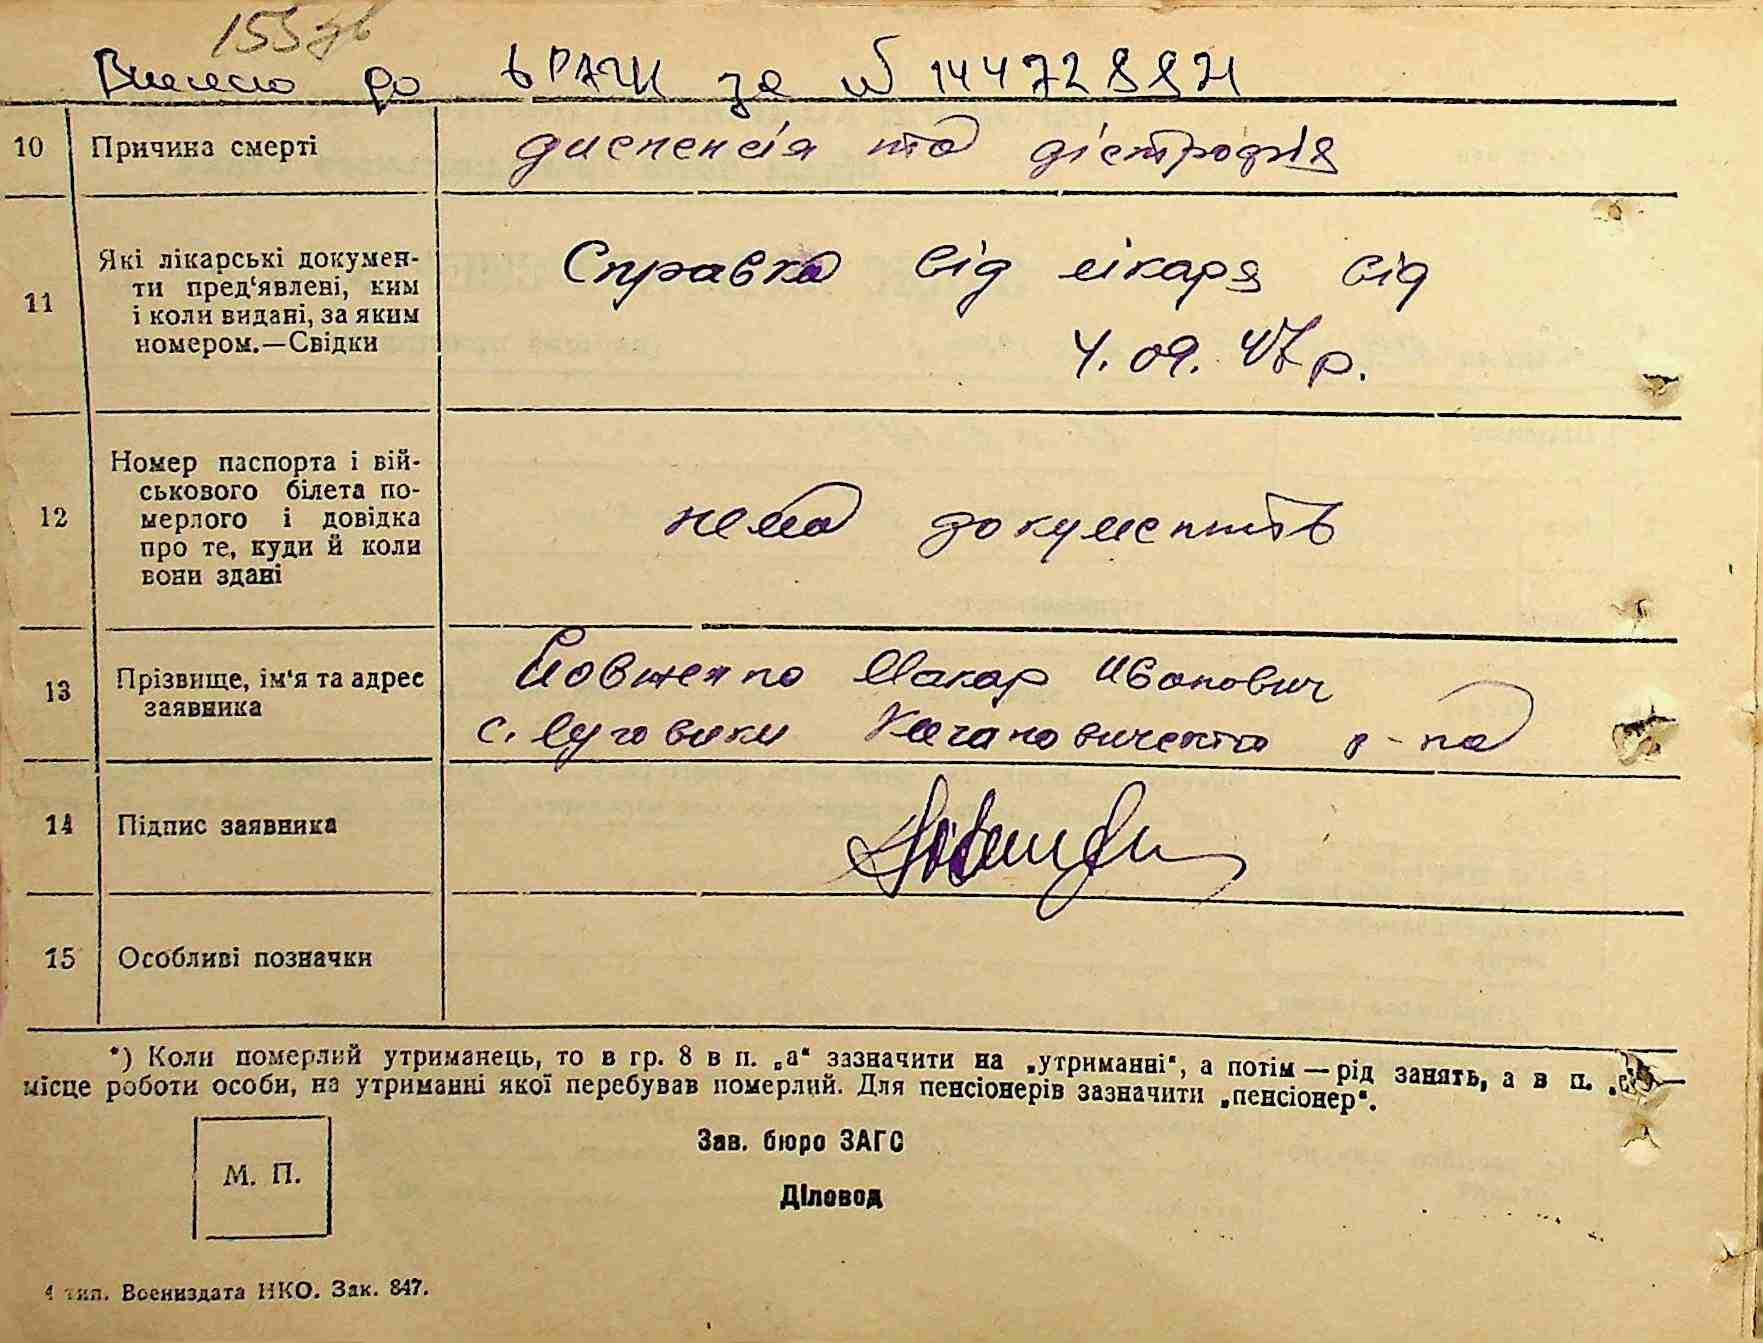 155зв
Внесено до ДРАЦС за № 14472997
10 Причина смерті диспепсія та дістрофія
11 Які лікарські докумен-
ти пред‘явлені, ким
і коли видані, за яким
номером.—Свідки
Справка від лікаря від
4.09.47р.
12 Номер паспорта і вій-
ськового білета по-
мерлого і довідка
про те, куди й коли
вони здані
нема документів
13 Прізвище, ім‘я та адрес
заявника
Макар Иванович
с. Луговики р-на
14 Підпис заявника
15 Особливі позначки
*) Коли померлий утриманець, то в гр. 8 в п. „а“ зазначити на „утриманні“, а потім — рід занять, а в п.
місце роботи особи, на утриманні якої перебував померлий. Для пенсіонерів зазначити „пенсіонер“.
Зав. бюро ЗАГС
М. П.
Діловод
4 тип. Воениздата НКО. Зак. 847.